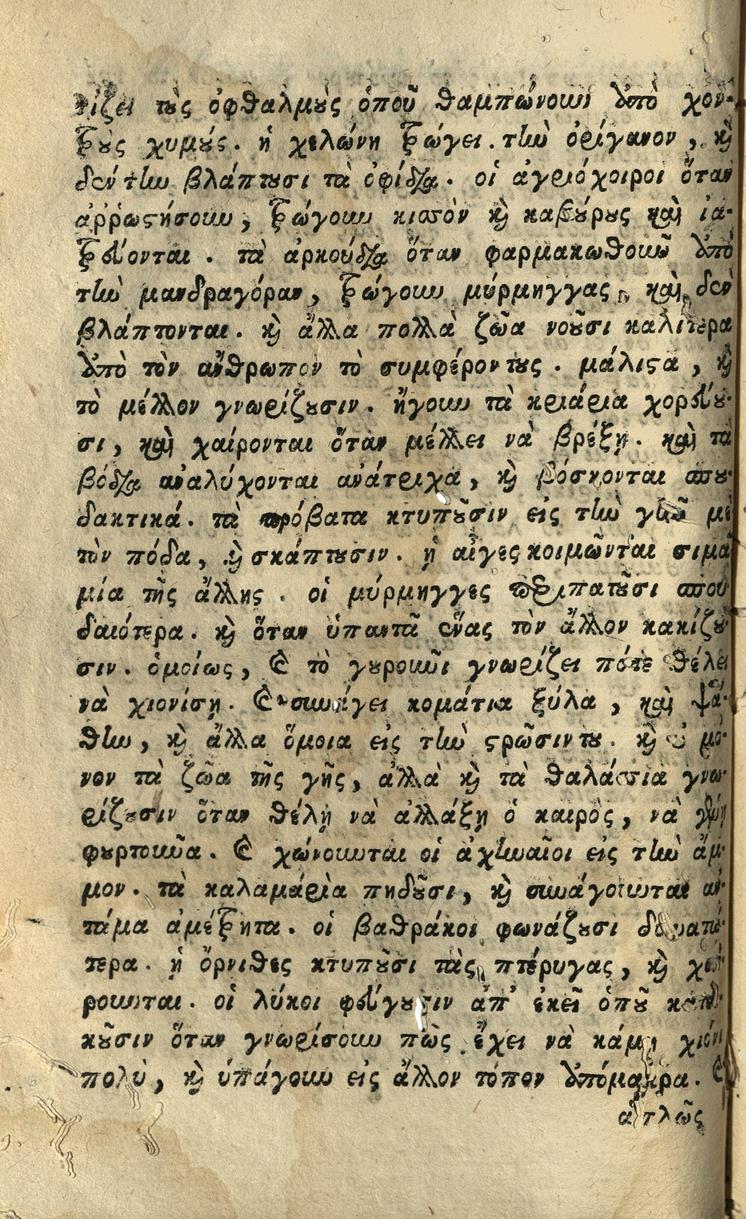 τίζει τοὺς ὀφθαλμοὺς ὁποῦ θαμπώνουν ἀπὸ χον-
τροὺς χυμούς. ἡ χελώνη τρώγει τὴν ὀρίγανον, καὶ
δέν τὴν βλάπτουσι τὰ ὀφίδια. οἱ ἀγριόχοιροι ὅταν
ἀῤῥωστήσουν, τρώγουν κισσὸν καὶ καβούρους καὶ ἰα-
τρεύονται. τὰ ἀρκούδια ὅταν φαρμακωθοῦν ἀπὸ
τὴν μανδραγόραν, τρώγουν μύρμηγγας, καὶ δὲν
βλάπτονται. καὶ ἄλλα πολλὰ ζῶα νοῦσι καλίτερα
ἀπὸ τὸν ἄνθρωπον τὸ συμφέροντους. μάλιστα, καὶ
τὸ μέλλον γνωρίζουσιν. ἤγουν τὰ κριάρια χορεύου-
σι, καὶ χαίρονται ὅταν μέλλει νὰ βρέξῃ. καὶ τὰ
βόδια ἀναλύχονται ἀνάτριχα, καὶ βόσκονται σπου-
δακτικά. τὰ πρόβατα κτυποῦσιν εἰς τὴν γῆν μὲ
τὸν πόδα, καὶ σκάπτουσιν. ἡ αἶγες κοιμῶνται σιμὰ
μία τῆς ἄλλης. οἱ μύρμηγγες περιπατοῦσι σπου
δαιότερα. καὶ ὅταν ὑπαντᾷ ἕνας τὸν ἄλλον κακίζου-
σιν. ὁμοίως, καὶ τὸ γουροῦνι γνωρίζει πότε θέλει
νὰ χιονίσῃ. καὶ συνάγει κομάτια ξύλα, καὶ ψά-
θην, καὶ ἄλλα ὅμοια εἰς τὴν στρῶσιντου. καὶ οὐ μό-
νον τὰ ζῶα τῆς γῆς, ἀλλὰ καὶ τὰ θαλάσσια γνω-
ρίζουσιν ὅταν θέλῃ νὰ ἀλλάξῃ ὁ καιρὸς, νὰ γένῃ
φουρτοῦνα. καὶ χώνουνται οἱ ἀχιναῖοι εἰς τὴν ἄμ-
μον. τὰ καλαμάρια πηδοῦσι, καὶ συνάγουνται ἀν-
τάμα ἀμέτρητα. οἱ βαθράκοι φωνάζουσι δυνατώ-
τερα. ἡ ὄρνιθες κτυποῦσι τὰς πτέρυγας, καὶ χαί-
ρουνται. οἱ λύκοι φεύγουσιν ἀπ' ἐκεῖ ὁποῦ κατοι-
κοῦσιν ὅταν γνωρίσουν πὼς ἔχει νὰ κάμῃ χιόνι
πολὺ, καὶ ὑπάγουν εἰς ἄλλον τόπον ἀπόμακρα. καὶ
ἁπλῶς